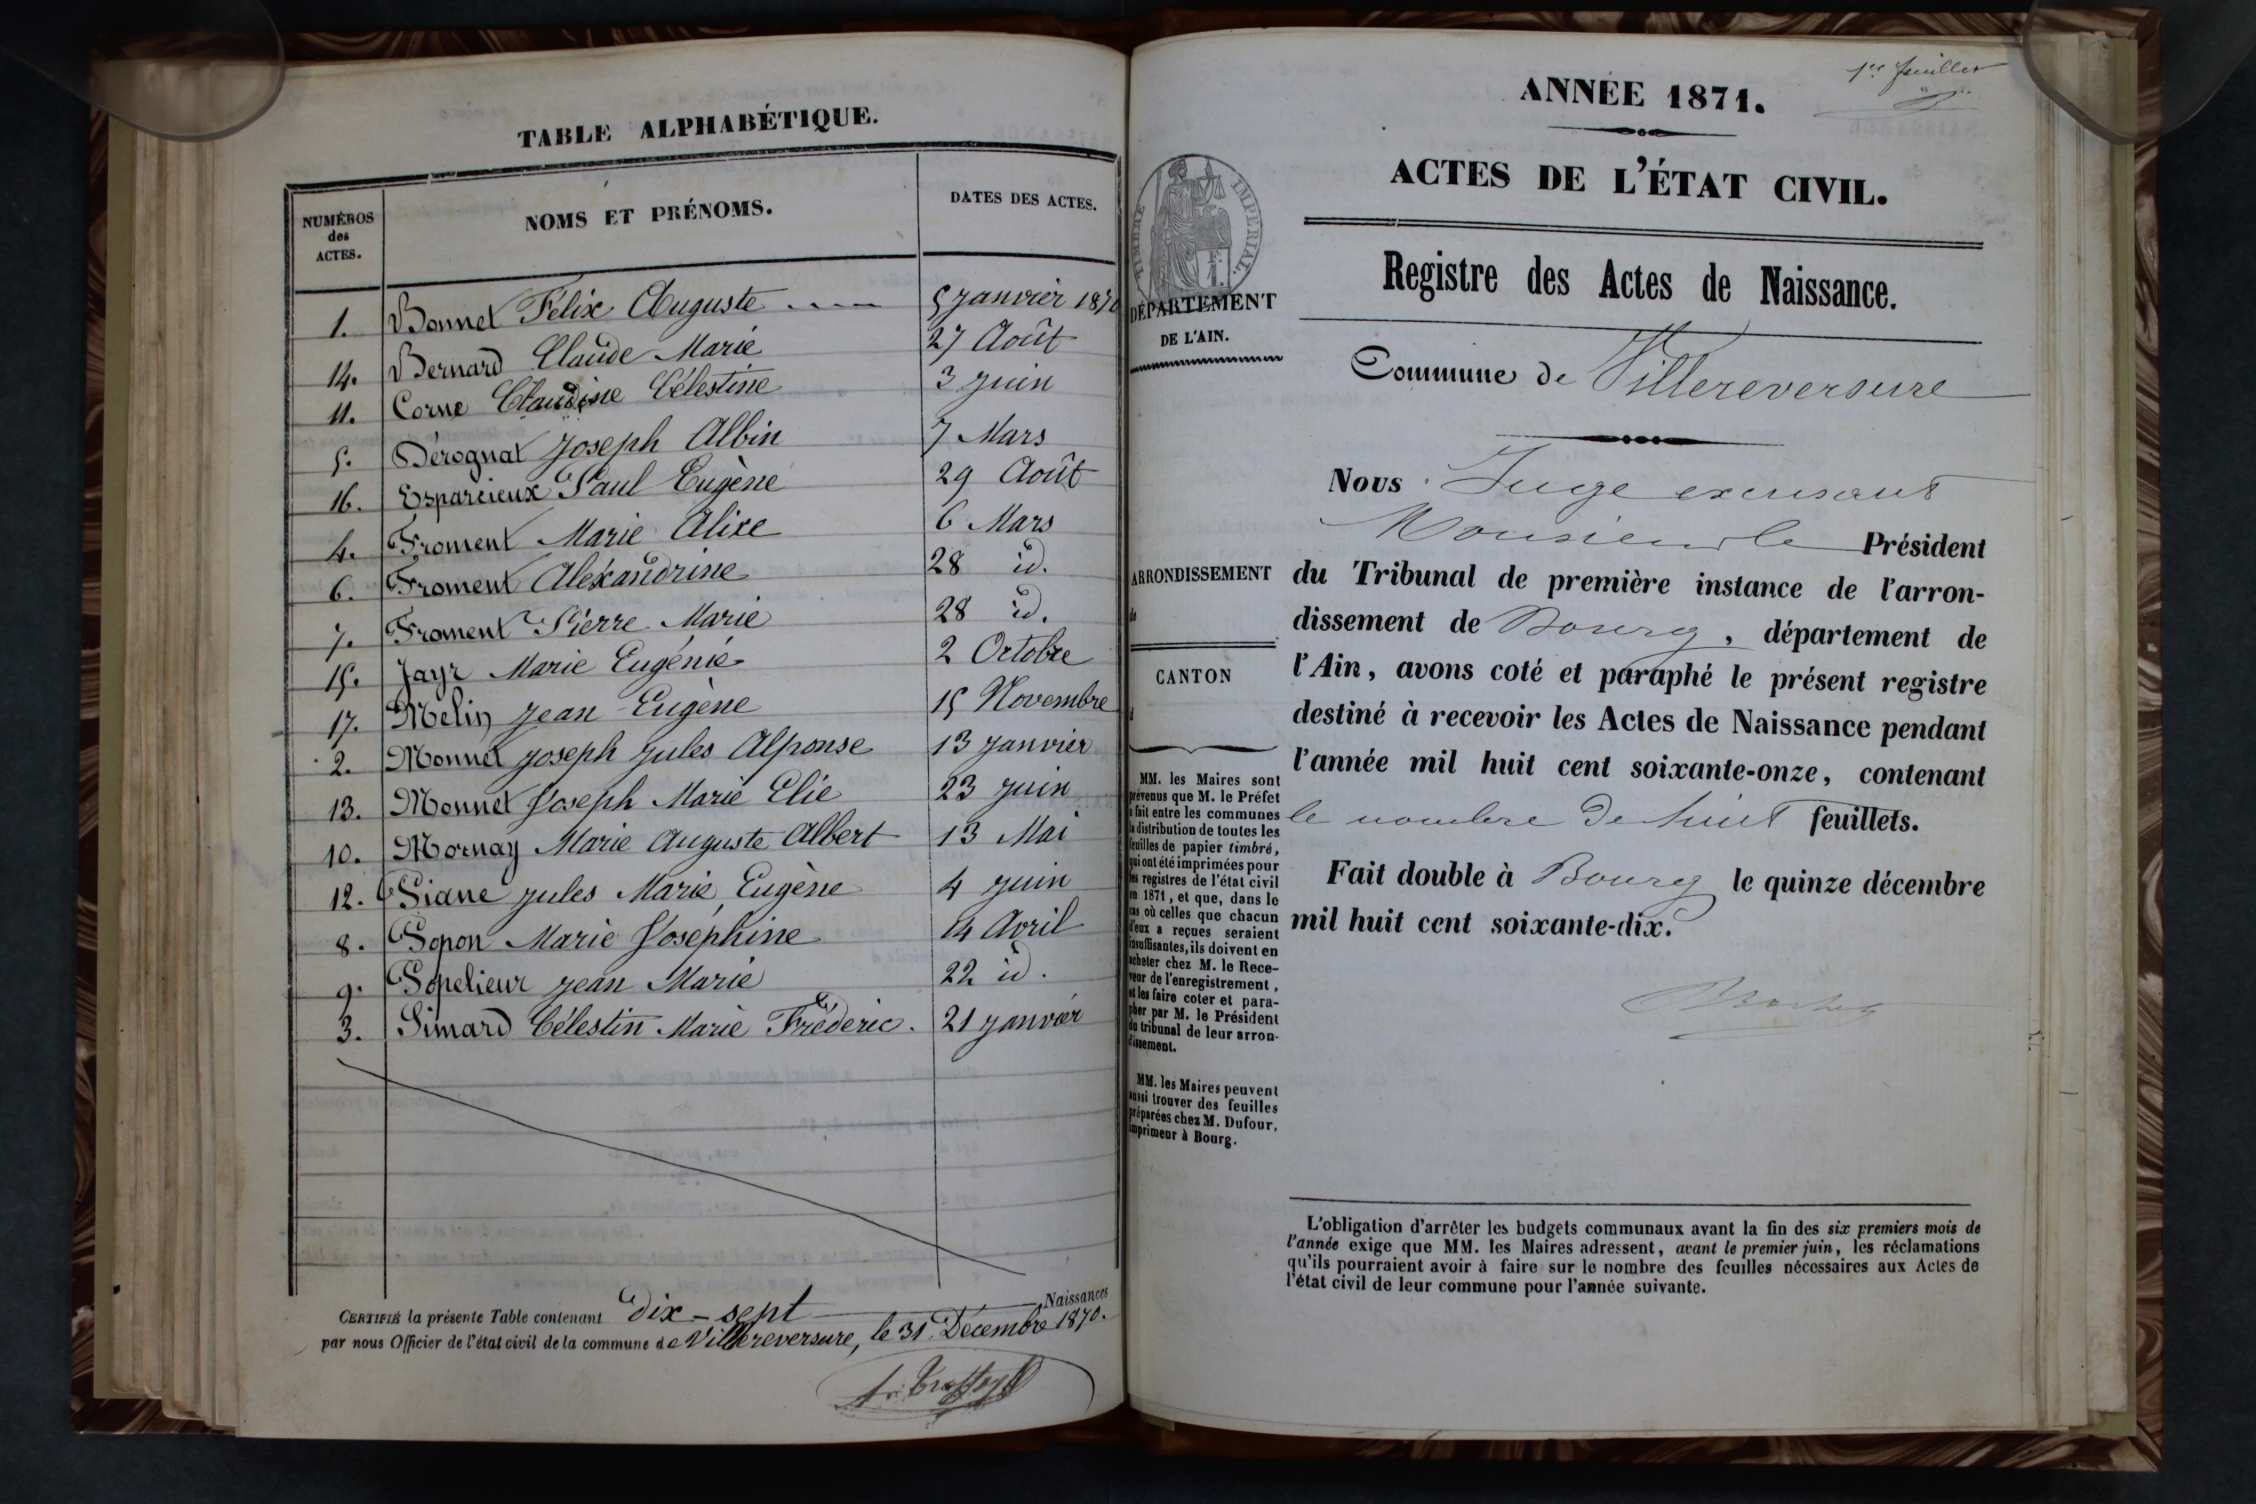 TABLE ALPHABÉTIQUE.
NUMÉROS des ACTES. NOMS ET PRÉNOMS. DATES DES ACTES.
1. Bonnet Félix Auguste 5 Janvier 1870
14. Bernard Claude Marie 27 Août
11. Corne Claudine Célestine 3 Juin
5. Dérognat Joseph Albin 7 Mars
16. Esparcieux Paul Eugène 29 Août
4. Froment Marie Alixe 6 Mars
6. Froment Aléxandrine 28 id.
7. Froment Pierre Marie 28 id.
15. Jayr Marie Eugénie 2 Octobre
17. Melin Jean Eugène 15 Novembre
2. Monnet Joseph Jules Alponse 13 Janvier
13. Monnet Joseph Marie Elie 23 Juin
10. Mornay Marie Auguste Albert 13 Mai
12. Piane Jules Marie Eugène 4 Juin
8. Popon Marie Joséphine 14 Avril
9. Popelieur Jean Marie 22 id.
3. Simard Célestin Marie Fréderic. 21 Janvier
CERTIFIÉ la présente Table contenant dix-sept Naissances
par nous Officier de l'état civil de la commune de Villereversure, le 31 Décembre 1870.
1er feuillet
ANNÉE 1871.
ACTES DE L'ÉTAT CIVIL.
TIMBRE IMPÉRIAL.
DÉPARTEMENT
DE L'AIN.
Registre des Actes de Naissance.
Commune de Villereversure
ARRONDISSEMENT
de
CANTON
d
MM. les Maires sont
prévenus que M. le Préfet
a fait entre les communes
la distribution de toutes les
feuilles de papier timbré,
qui ont été imprimées pour
les registres de l'état civil
en 1871, et que, dans le
cas où celles que chacun
d'eux a reçues seraient
insuffisantes, ils doivent en
acheter chez M. le Rece-
veur de l'enregistrement,
et les faire coter et para-
pher par M. le Président
du tribunal de leur arron-
dissement.
MM. les Maires peuvent
aussi trouver des feuilles
préparées chez M. Dufour,
imprimeur à Bourg.
Nous Juge excusant
Monsieur le Président
du Tribunal de première instance de l'arron-
dissement de Bourg, département de
l'Ain, avons coté et paraphé le présent registre
destiné à recevoir les Actes de Naissance pendant
l'année mil huit cent soixante-onze, contenant
le nombre de huit feuillets.
Fait double à Bourg le quinze décembre
mil huit cent soixante-dix.
L'obligation d'arrêter les budgets communaux avant la fin des six premiers mois de
l'année exige que MM. les Maires adressent, avant le premier juin, les réclamations
qu'ils pourraient avoir à faire sur le nombre des feuilles nécessaires aux Actes de
l'état civil de leur commune pour l'année suivante.